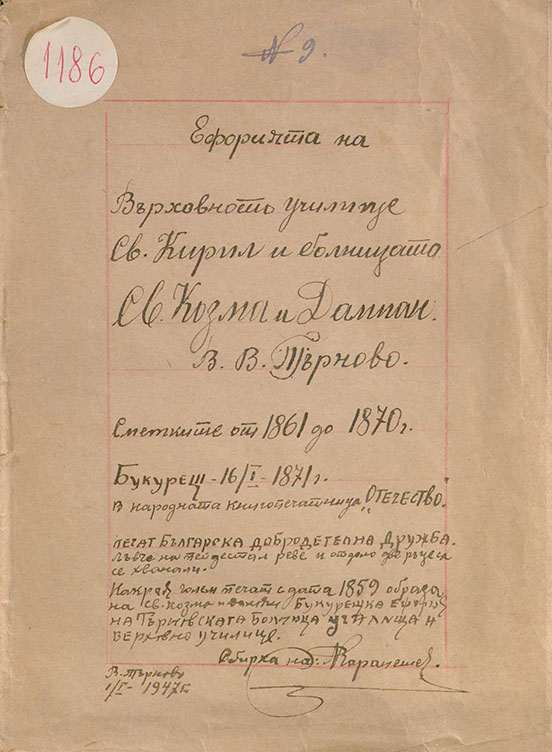 1186
№ 9.
Ефорията на
Върховното училище
Св. Кирил и болницата
Св. Козма и Дамиан.
В. В. Търново.
Сметките от 1861 до 1870 г.
Букурещ - 16/I - 1871 г.
В народната книгопечатница „Отечество".
печат Българска добродетелна дружба.
Лъвче на пейдестал реве и отдолу две ръце са
се хванали.
Накрая голям печат с дата 1859 образа
на св. козма и Дамян Букурещка Ефория
на Търновската болница училища и
верховно училище.
Сбирка на:
В. Търново
1/I - 1947 г.